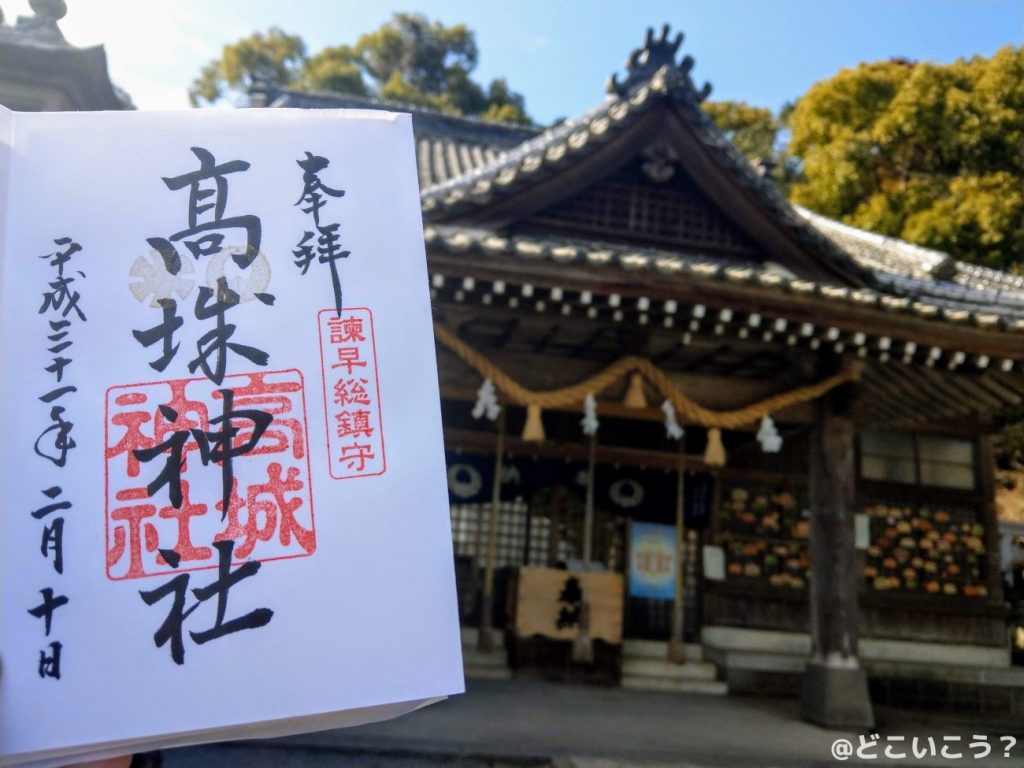 奉拝
諫早総鎮守
髙城神社
高城
神社
平成三十一年二月十日
奉納
@どこいこう？